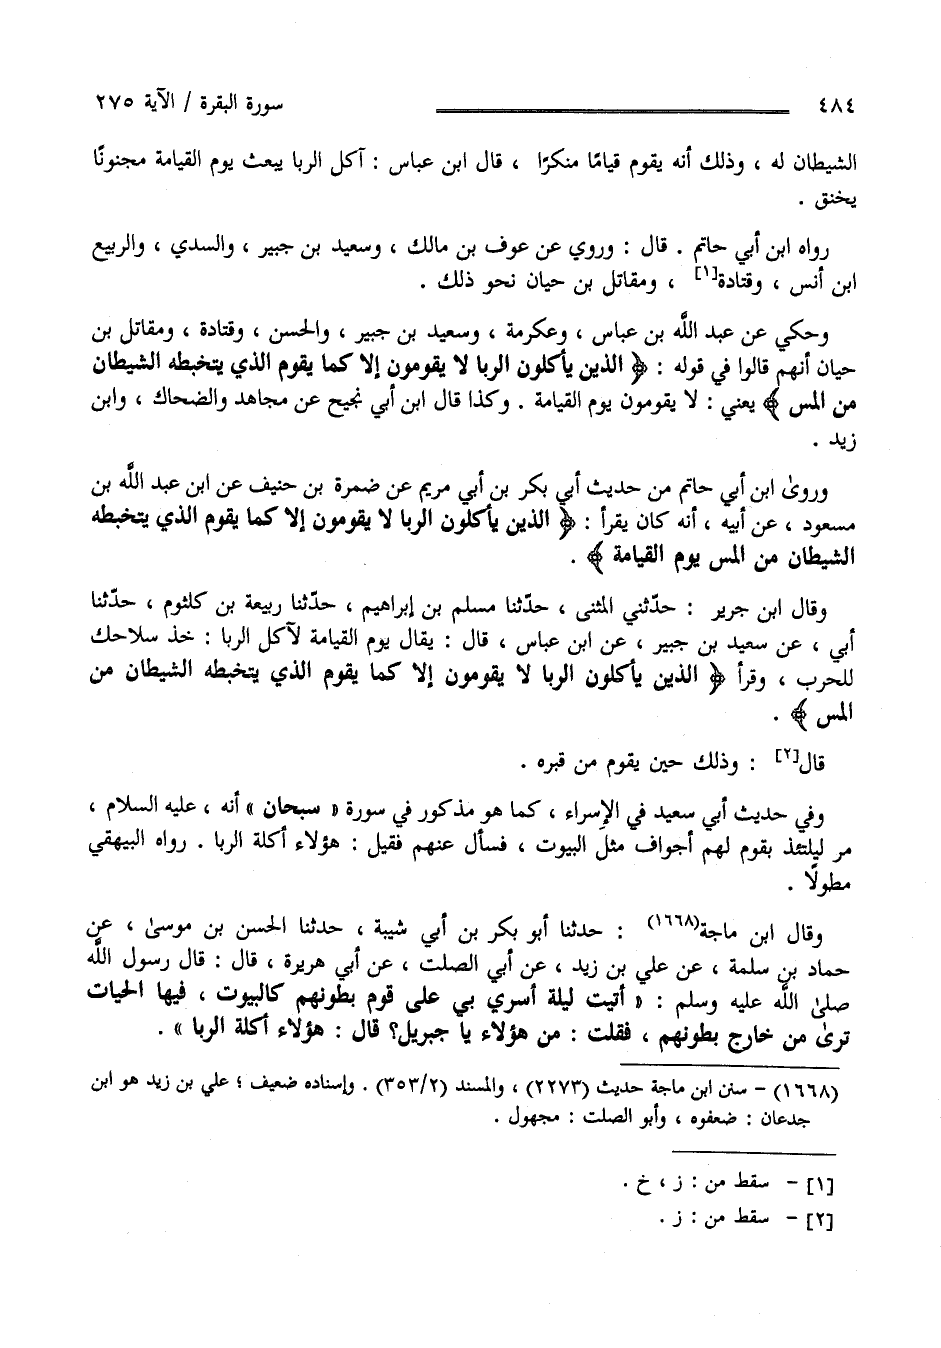 ٤٨٤ سورة البقرة / الآية ٢٧٥
الشيطان له ، وذلك أنه يقوم قيامًا منكرًا ، قال ابن عباس : آكل الربا يبعث يوم القيامة مجنونًا
يخنق .
رواه ابن أبي حاتم . قال : وروي عن عوف بن مالك ، وسعيد بن جبير ، والسدي ، والربيع
ابن أنس ، وقتادة[١] ، ومقاتل بن حيان نحو ذلك .
وحكي عن عبد اللَّه بن عباس ، وعكرمة ، وسعيد بن جبير ، والحسن ، وقتادة ، ومقاتل بن
حيان أنهم قالوا في قوله : ﴿ الذين يأكلون الربا لا يقومون إلا كما يقوم الذي يتخبطه الشيطان
من المس ﴾ يعني : لا يقومون يوم القيامة . وكذا قال ابن أبي نجيح عن مجاهد والضحاك ، وابن
زيد .
وروىٰ ابن أبي حاتم من حديث أبي بكر بن أبي مريم عن ضمرة بن حنيف عن ابن عبد اللَّه بن
مسعود ، عن أبيه ، أنه كان يقرأ : ﴿ الذين يأكلون الربا لا يقومون إلا كما يقوم الذي يتخبطه
الشيطان من المس يوم القيامة ﴾ .
وقال ابن جرير : حدّثني المثنى ، حدّثنا مسلم بن إبراهيم ، حدّثنا ربيعة بن كلثوم ، حدّثنا
أبي ، عن سعيد بن جبير ، عن ابن عباس ، قال : يقال يوم القيامة لآكل الربا : خذ سلاحك
للحرب ، وقرأ ﴿ الذين يأكلون الربا لا يقومون إلا كما يقوم الذي يتخبطه الشيطان من
المس ﴾ .
قال[٢] : وذلك حين يقوم من قبره .
وفي حديث أبي سعيد في الإسراء ، كما هو مذكور في سورة « سبحان » أنه ، عليه السلام ،
مر ليلتئذ بقوم لهم أجواف مثل البيوت ، فسأل عنهم فقيل : هؤلاء أكلة الربا . رواه البيهقي
مطولًا .
وقال ابن ماجة(١٦٦٨) : حدثنا أبو بكر بن أبي شيبة ، حدثنا الحسن بن موسىٰ ، عن
حماد بن سلمة ، عن علي بن زيد ، عن أبي الصلت ، عن أبي هريرة ، قال : قال رسول اللَّه
صلىٰ اللَّه عليه وسلم : « أتيت ليلة أسري بي على قوم بطونهم كالبيوت ، فيها الحيات
ترىٰ من خارج بطونهم ، فقلت : من هؤلاء يا جبريل؟ قال : هؤلاء أكلة الربا » .
(١٦٦٨) - سنن ابن ماجة حديث (٢٢٧٣) ، والمسند (٣٥٣/٢) . وإسناده ضعيف ؛ علي بن زيد هو ابن
جدعان : ضعفوه ، وأبو الصلت : مجهول .
[١] - سقط من : ز ، خ .
[٢] - سقط من : ز .